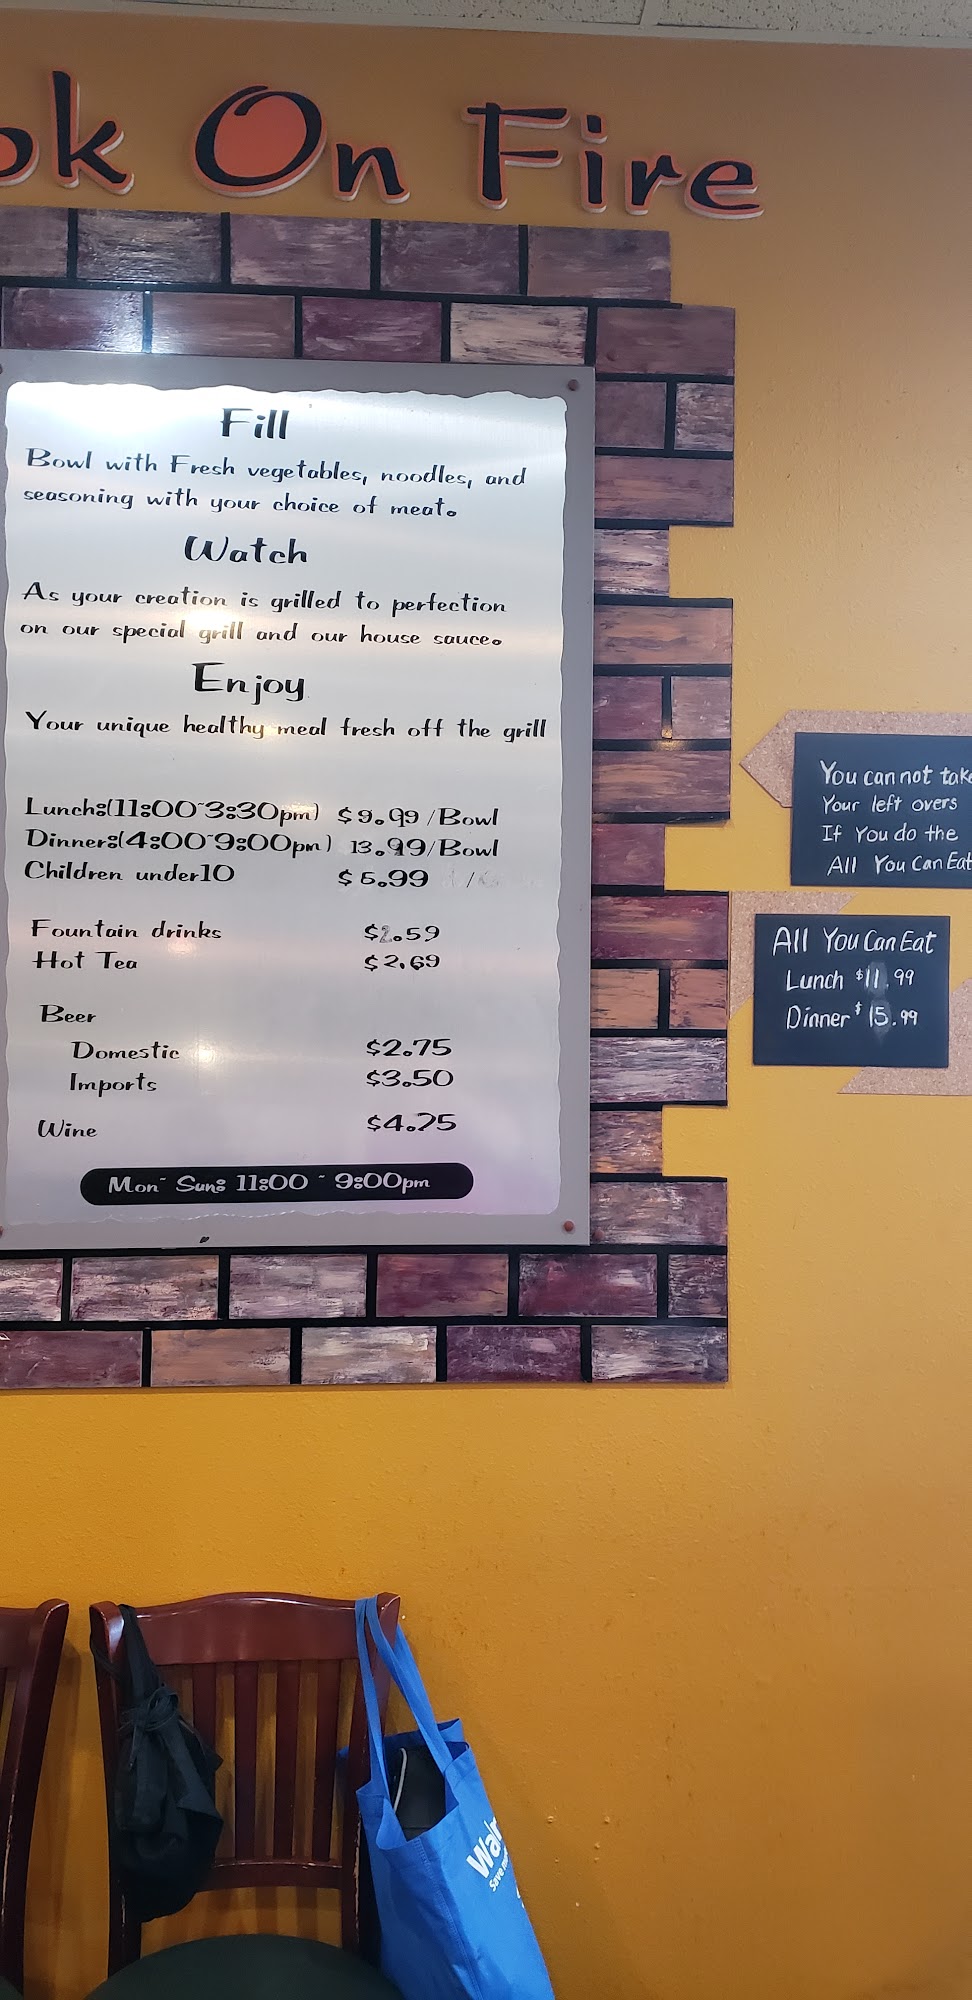 ok On Fire
Fill
Bowl with Fresh vegetables, noodles, and
seasoning with your choice of meat.
Watch
As your creation is grilled to perfection
on our special grill and our house sauce.
Enjoy
Your unique healthy meal fresh off the grill
Lunch:(11:00~3:30pm) $9.99/Bowl
Dinner:(4:00~9:00pm) 13.99/Bowl
Children under10 $5.99
Fountain drinks $2.59
Hot Tea $2.69
Beer
Domestic $2.75
Imports $3.50
Wine $4.25
Mon~ Sun: 11:00 ~ 9:00pm
You can not take
Your left overs
If You do the
All You Can Eat
All You Can Eat
Lunch $11.99
Dinner $15.99
Wal
Save